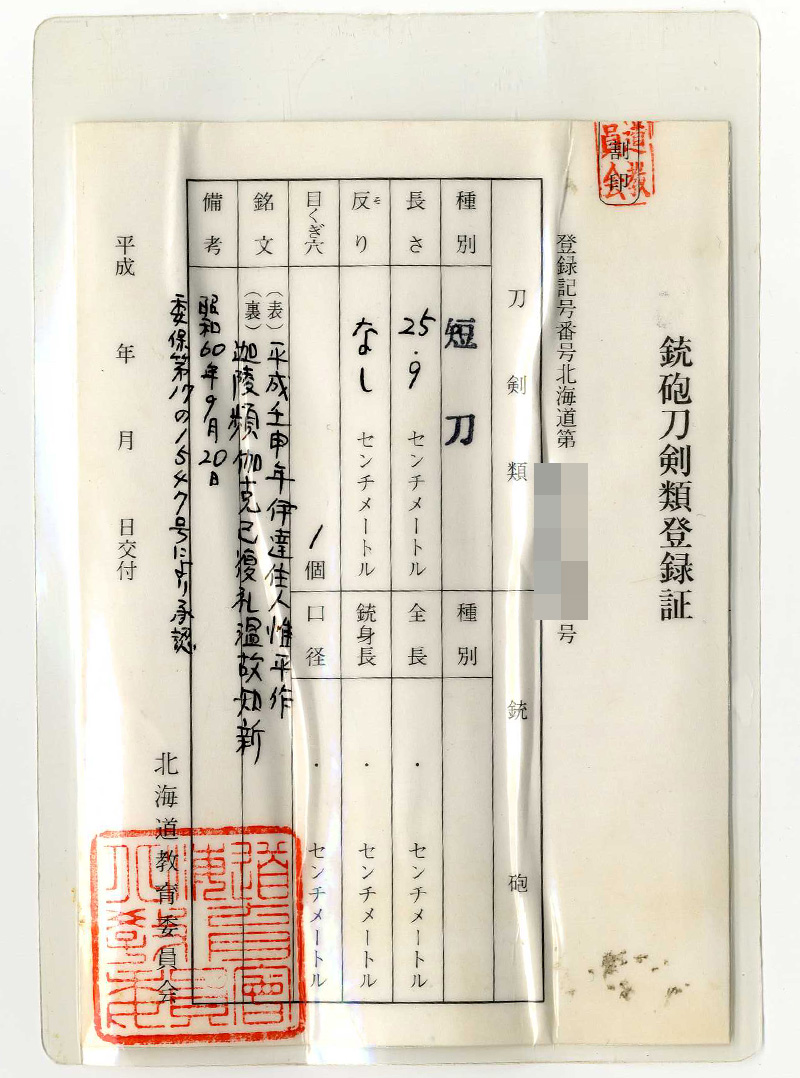 割印
銃砲刀剣類登録証
登録記号番号北海道第
号
刀剣類
銃砲
種別 短刀
長さ 25.9 センチメートル
反り なし センチメートル
目くぎ穴 1個
銘文 (表) 平成壬申年伊達住人惟平作
(裏) 迦陵頻伽克己復礼温故知新
備考 昭和60年9月20日
委保第17の1547号により承認
種別
全長 ・ センチメートル
銃身長 ・ センチメートル
口径 ・ センチメートル
平成 年 月 日交付
北海道教育委員会